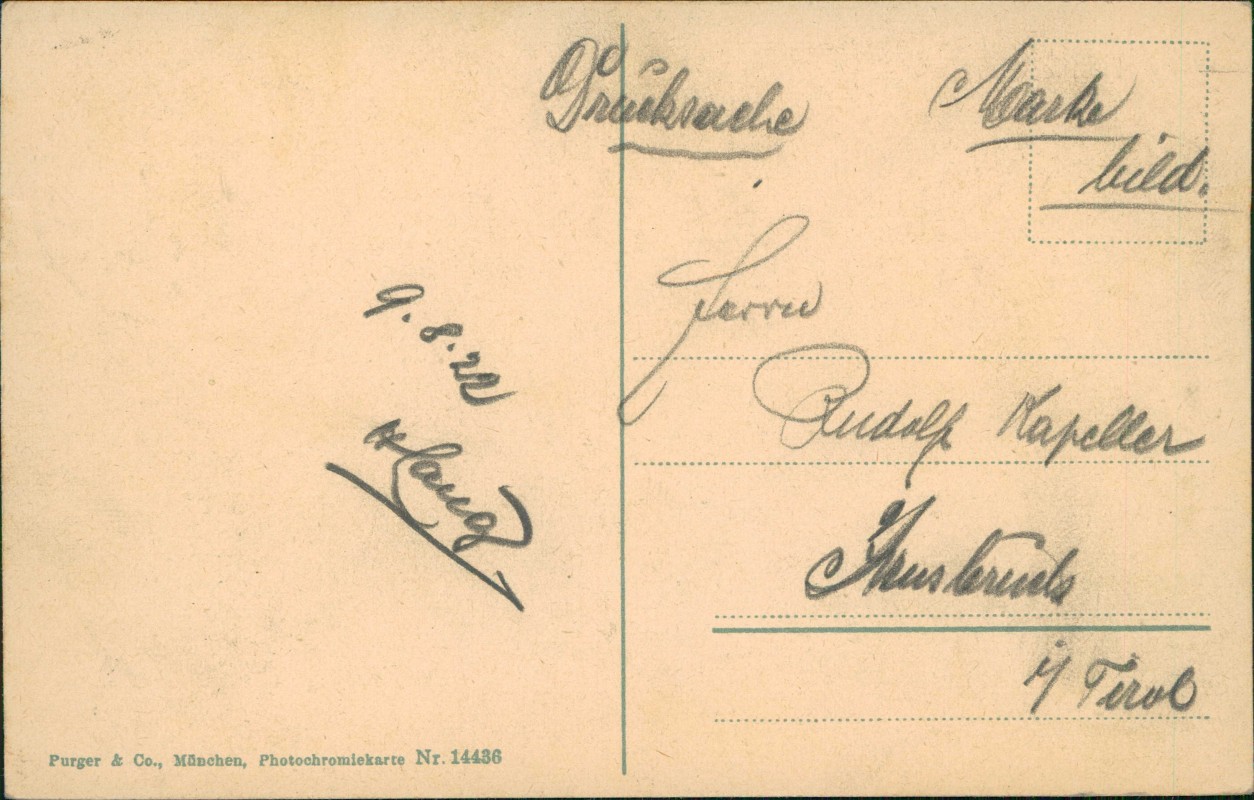 Drucksache
Marke
bild.
Herrn
Rudolf Kapeller
Innsbruck
i/ Tirol
9.8.22
Haug
Purger & Co., München, Photochromiekarte Nr. 14436